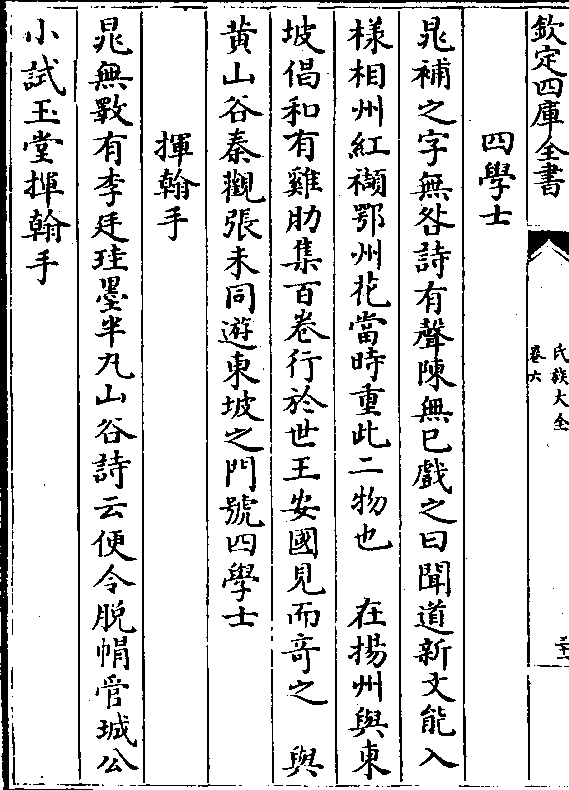 欽定四庫全書
氏族大全
卷六
四學士
晁補之字無咎詩有聲陳無已戲之曰聞道新文能入
樣相州紅纈鄂州花當時重此二物也　在揚州與東
坡倡和有雞肋集百卷行於世王安國見而竒之　與
黄山谷秦觀張耒同遊東坡之門號四學士
揮翰手
晁無斁有李廷珪墨半丸山谷詩云便令脱帽管城公
小試玉堂揮翰手